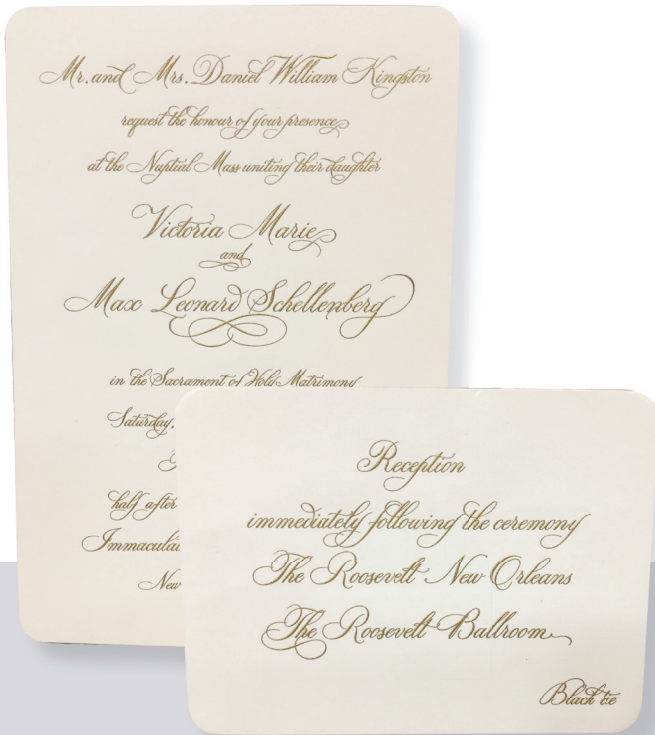 Mr. and Mrs. Daniel William Kingston
request the honour of your presence
at the Nuptial Mass uniting their daughter
Victoria Marie
and
Max Leonard Schellenberg
in the Sacrament of Holy Matrimony
Saturday,
half after
New
Reception
immediately following the ceremony
The Roosevelt New Orleans
The Roosevelt Ballroom
Black tie